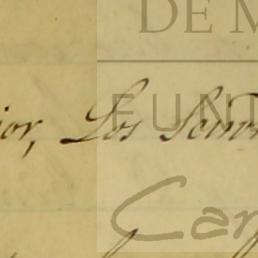 DE M
ior, Los Señor
FUNT
Car